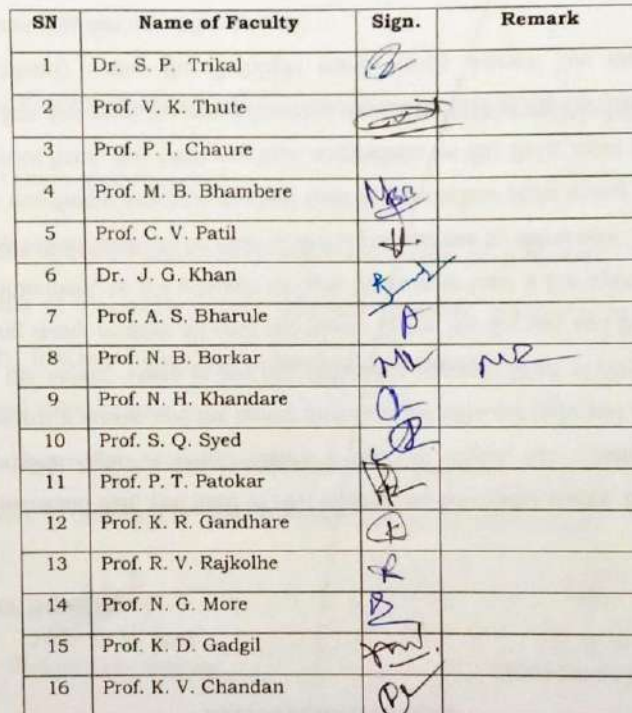 SN Name of Faculty Sign. Remark
1 Dr. S. P. Trikal
2 Prof. V. K. Thute
3 Prof. P. I. Chaure
4 Prof. M. B. Bhambere
5 Prof. C. V. Patil
6 Dr. J. G. Khan
7 Prof. A. S. Bharule
8 Prof. N. B. Borkar
9 Prof. N. H. Khandare
10 Prof. S. Q. Syed
11 Prof. P. T. Patokar
12 Prof. K. R. Gandhare
13 Prof. R. V. Rajkolhe
14 Prof. N. G. More
15 Prof. K. D. Gadgil
16 Prof. K. V. Chandan